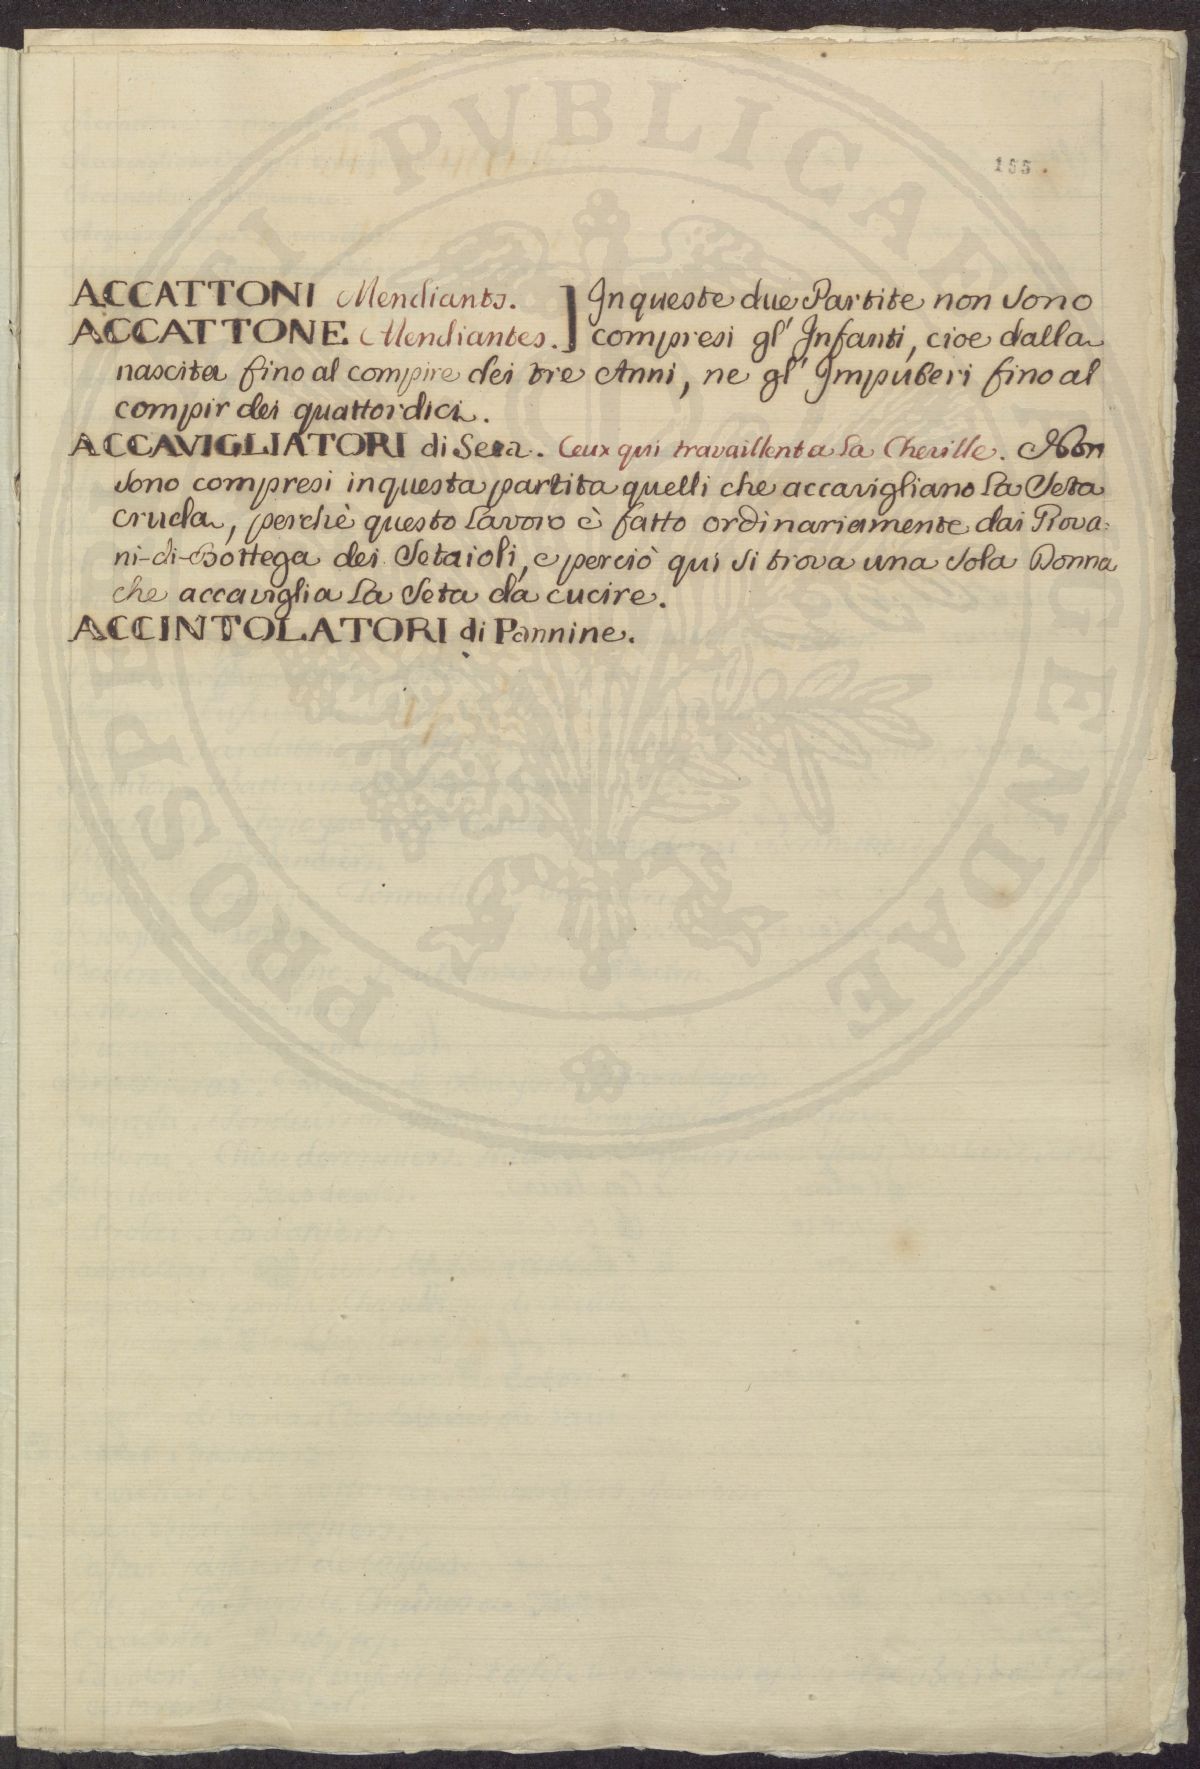 PROSPERITATI PVBLICAE AVGENDAE
155.
ACCATTONI Mendiants. ] In queste due Partite non sono
ACCATTONE Mendiantes. ] compresi gl' Infanti, cioe dalla
nascita fino al compire dei tre Anni, ne gl' Impuberi fino al
compir dei quattordici.
ACCAVIGLIATORI di Seta. Ceux qui travaillent a la Cheville. Non
sono compresi in questa partita quelli che accavigliano la Seta
cruda, perchè questo lavoro è fatto ordinariamente dai Giova:
ni-di-Bottega dei Setaioli, e perciò qui si trova una sola Donna
che accaviglia la Seta da cucire.
ACCINTOLATORI di Pannine.